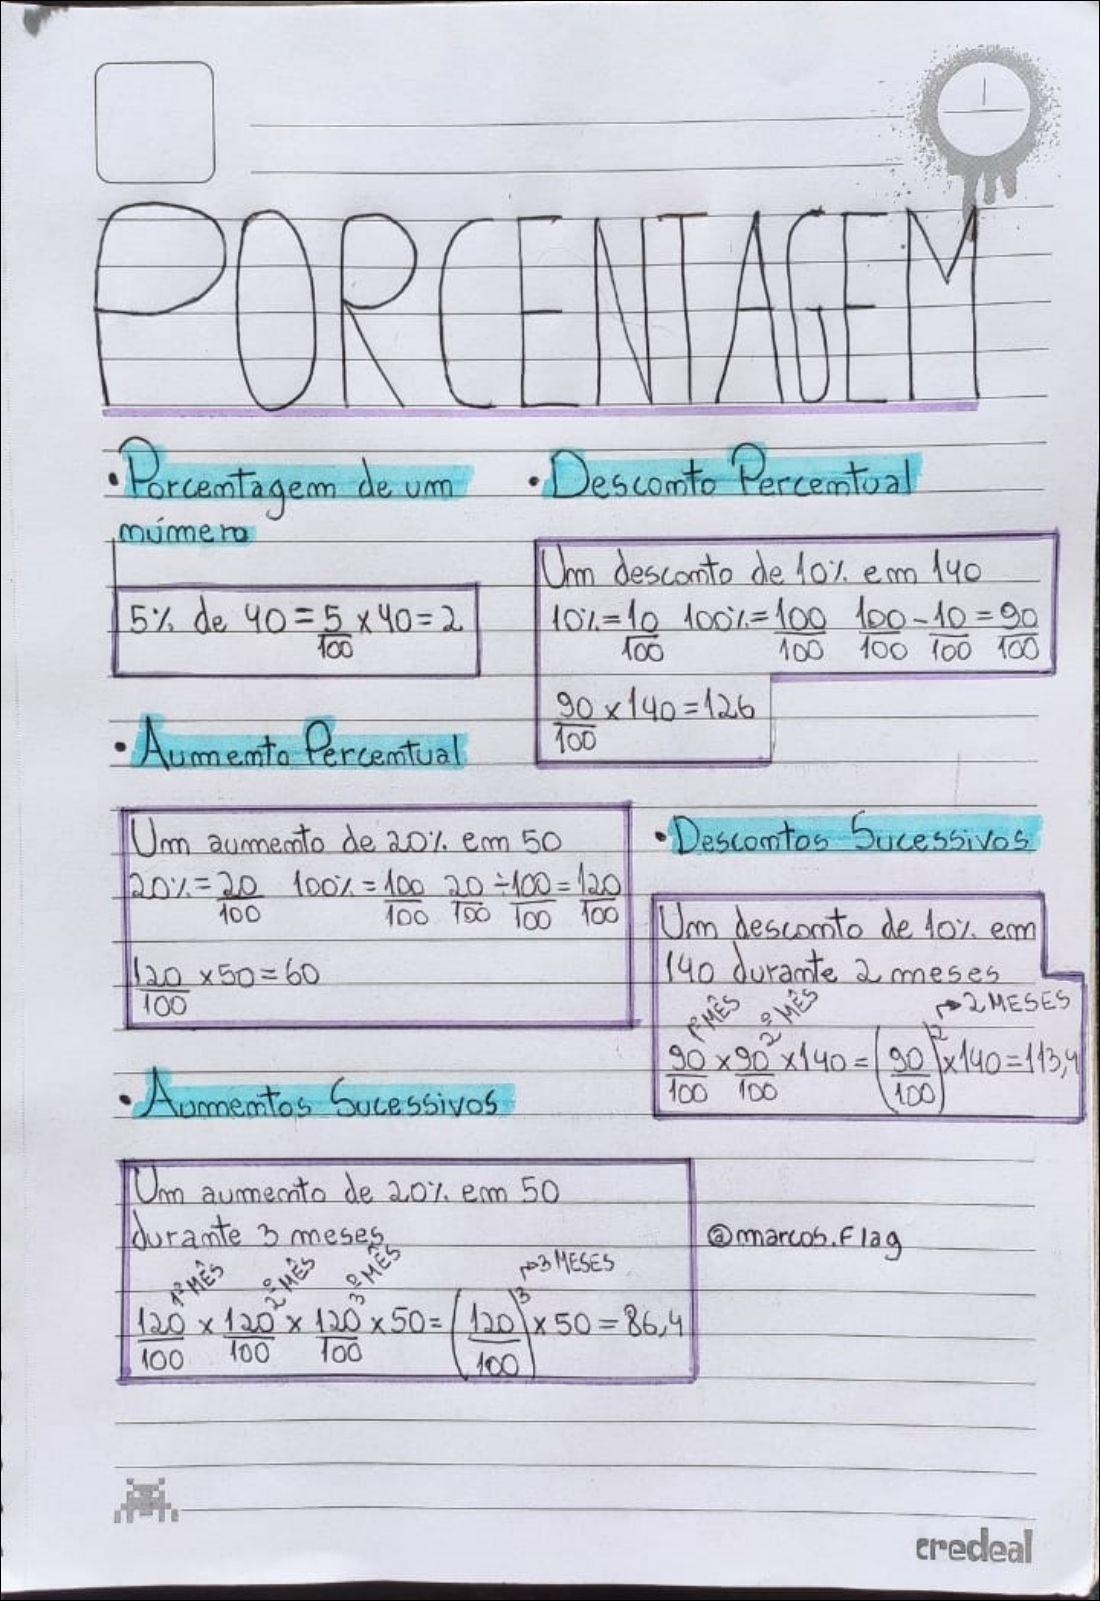 PORCENTAGEM
• Porcentagem de um
número
5% de 40 = 5/100 x 40 = 2
• Desconto Percentual
Um desconto de 10% em 140
10% = 10/100 100% = 100/100 100/100 - 10/100 = 90/100
90/100 x 140 = 126
• Aumento Percentual
Um aumento de 20% em 50
20% = 20/100 100% = 100/100 20/100 ÷ 100/100 = 120/100
120/100 x 50 = 60
• Descontos Sucessivos
Um desconto de 10% em
140 durante 2 meses
1º MÊS 2º MÊS → 2 MESES
90/100 x 90/100 x 140 = (90/100)² x 140 = 113,4
• Aumentos Sucessivos
Um aumento de 20% em 50
durante 3 meses
1º MÊS 2º MÊS 3º MÊS → 3 MESES
120/100 x 120/100 x 120/100 x 50 = (120/100)³ x 50 = 86,4
@marcos.flag
credeal